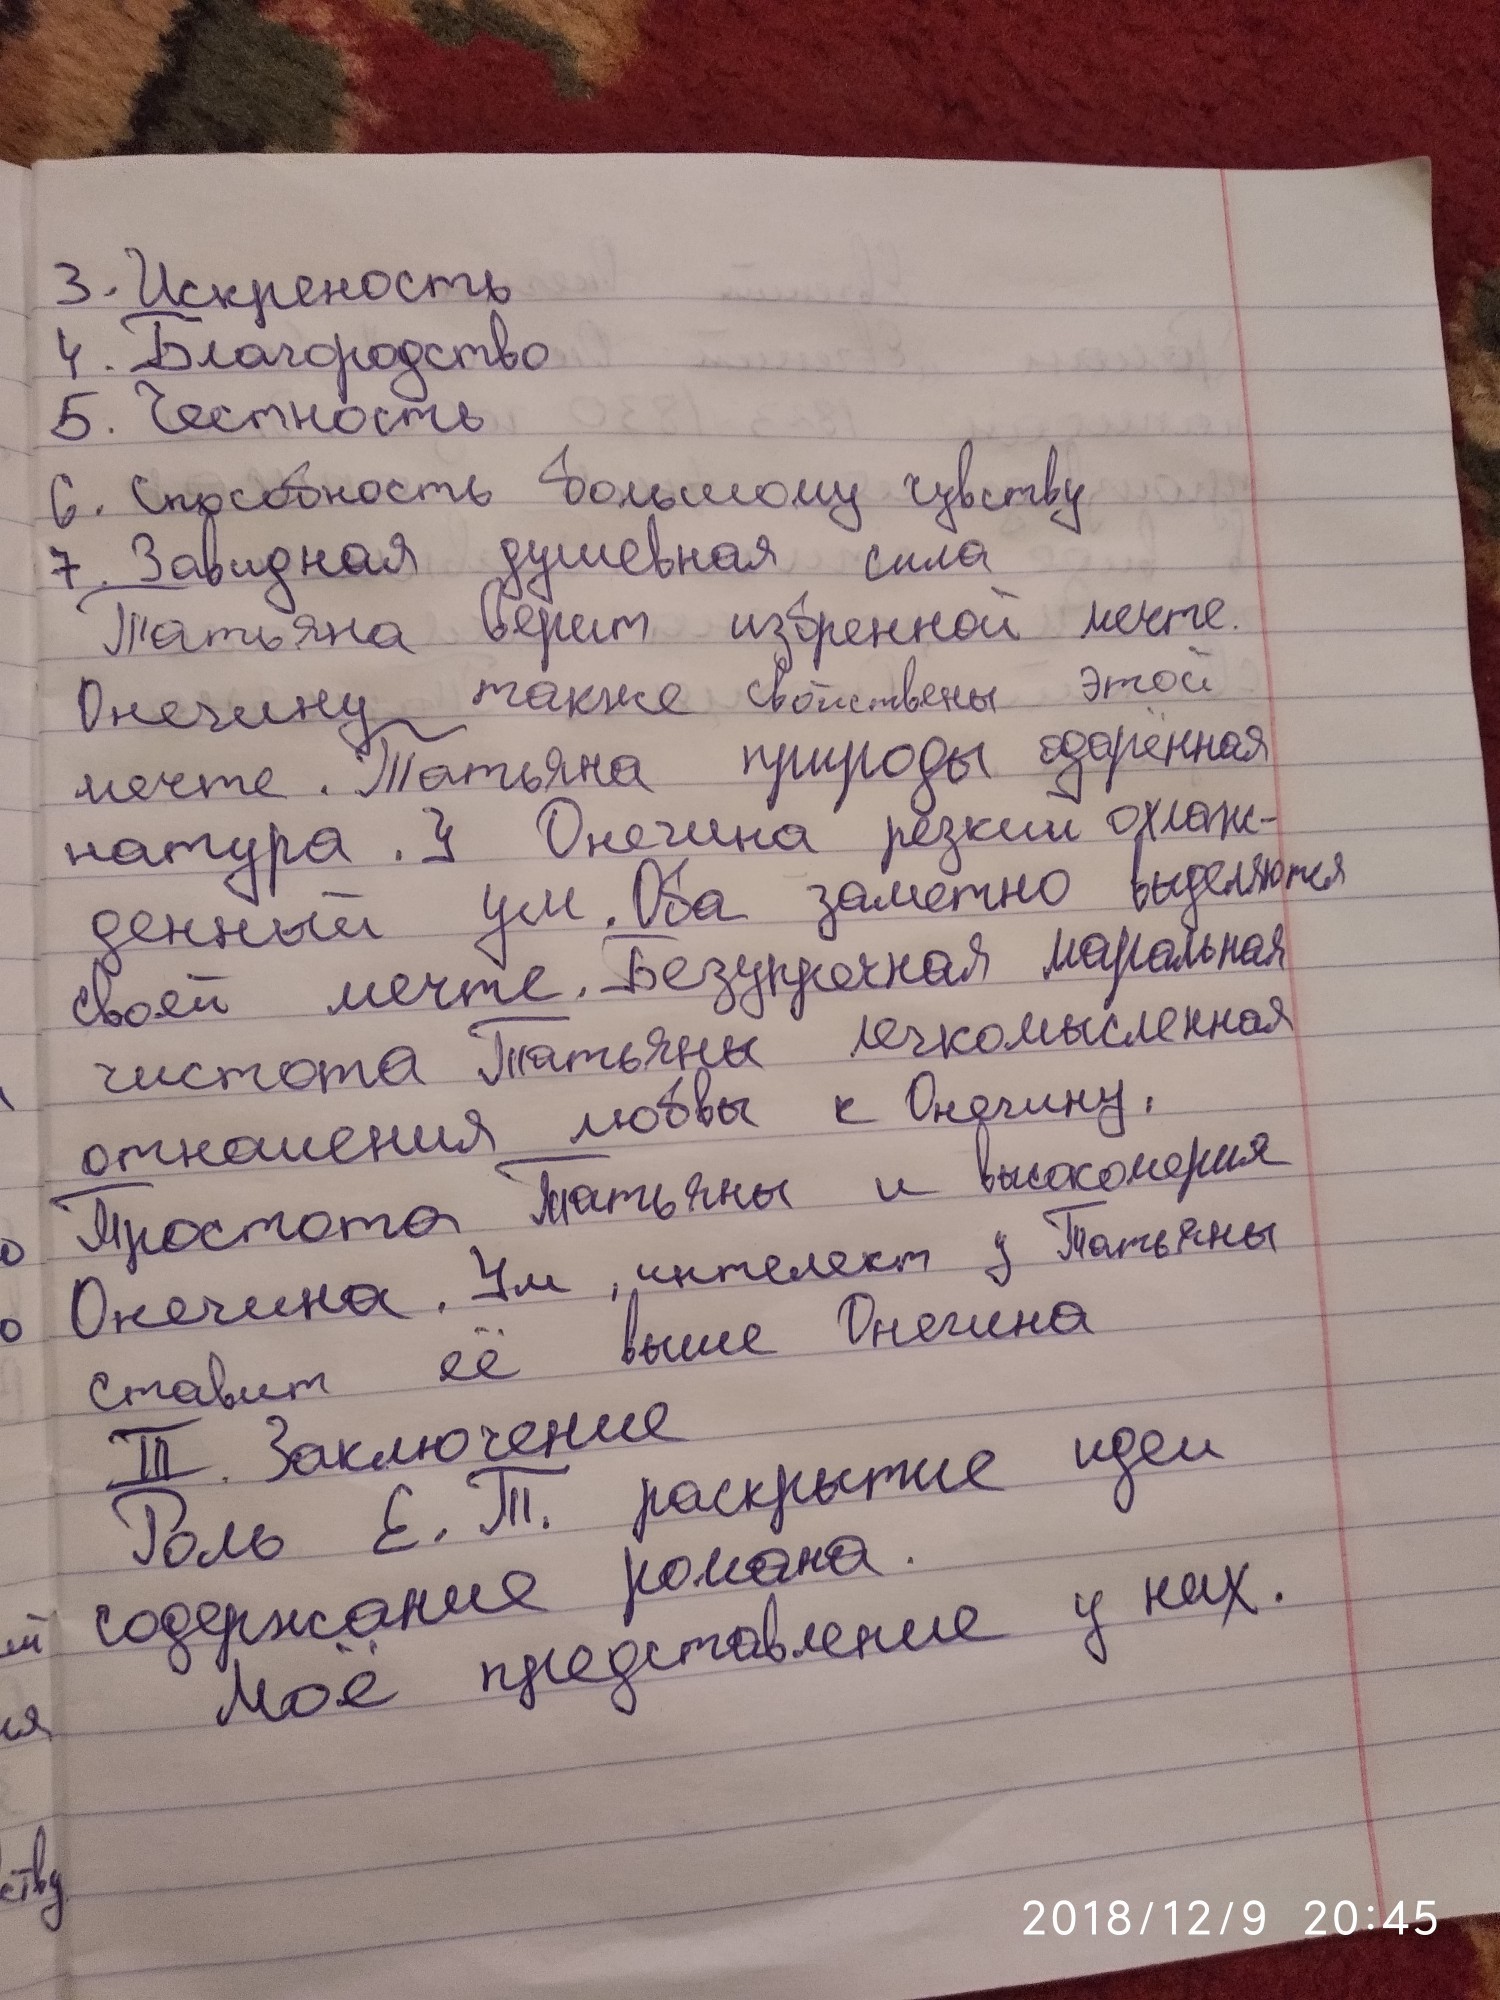 3. Искреность
4. Благородство
5. Честность
6. Способность большому чувству
7. Завидная душевная сила
Татьяна верит избренной мечте.
Онечину также свойствены этой
мечте. Татьяна природы одарённая
натура. У Онегина резкий охлаж-
денный ум. Оба заметно выделяются
своей мечте. Безупречная маральная
чистота Татьяны лечкомысленная
отношения любвы к Онечину.
Простота Татьяны и высокомерия
Онечина. Ум, интелект у Татьяны
ставит её выше Онегина
III. Заключение
Роль Е. Т. раскрытие идеи
содержание романа.
Моё представление у них.
ству
2018/12/9 20:45